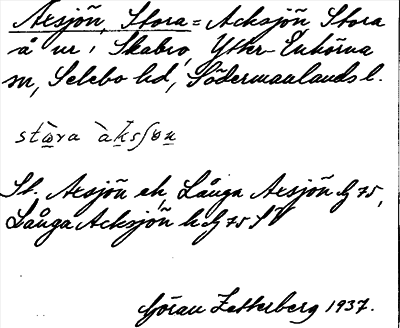 Axsjön, Stora = Acksjön Stora
å ur i Skabro, Ytter-Enhörna
sn, Selebo hd, Södermanlands l.
St. Axsjön ek, Långa Axsjön dy 75,
Långa Acksjön h dy 75 SV
Göran Zetterberg 1937.